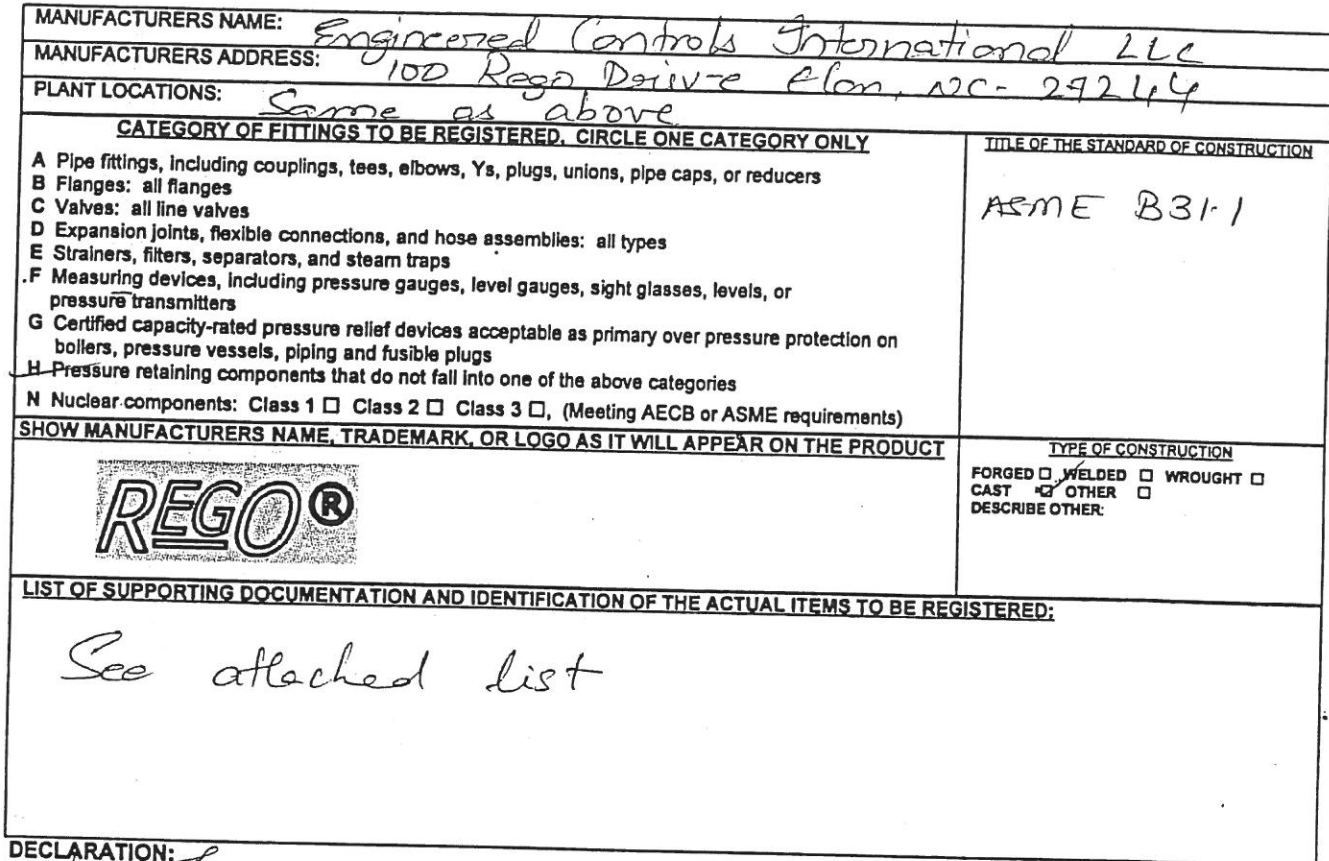 MANUFACTURERS NAME: Engineered Controls International LLC
MANUFACTURERS ADDRESS: 100 Rego Drive Elon, NC- 27244
PLANT LOCATIONS: Same as above
CATEGORY OF FITTINGS TO BE REGISTERED. CIRCLE ONE CATEGORY ONLY
A Pipe fittings, including couplings, tees, elbows, Ys, plugs, unions, pipe caps, or reducers
B Flanges: all flanges
C Valves: all line valves
D Expansion joints, flexible connections, and hose assemblies: all types
E Strainers, filters, separators, and steam traps
F Measuring devices, including pressure gauges, level gauges, sight glasses, levels, or
pressure transmitters
G Certified capacity-rated pressure relief devices acceptable as primary over pressure protection on
boilers, pressure vessels, piping and fusible plugs
H Pressure retaining components that do not fall into one of the above categories
N Nuclear components: Class 1 ☐ Class 2 ☐ Class 3 ☐, (Meeting AECB or ASME requirements)
TITLE OF THE STANDARD OF CONSTRUCTION
ASME B31.1
SHOW MANUFACTURERS NAME, TRADEMARK, OR LOGO AS IT WILL APPEAR ON THE PRODUCT
REGO®
TYPE OF CONSTRUCTION
FORGED ☐ WELDED ☐ WROUGHT ☐
CAST ☑ OTHER ☐
DESCRIBE OTHER:
LIST OF SUPPORTING DOCUMENTATION AND IDENTIFICATION OF THE ACTUAL ITEMS TO BE REGISTERED:
See attached list
DECLARATION: